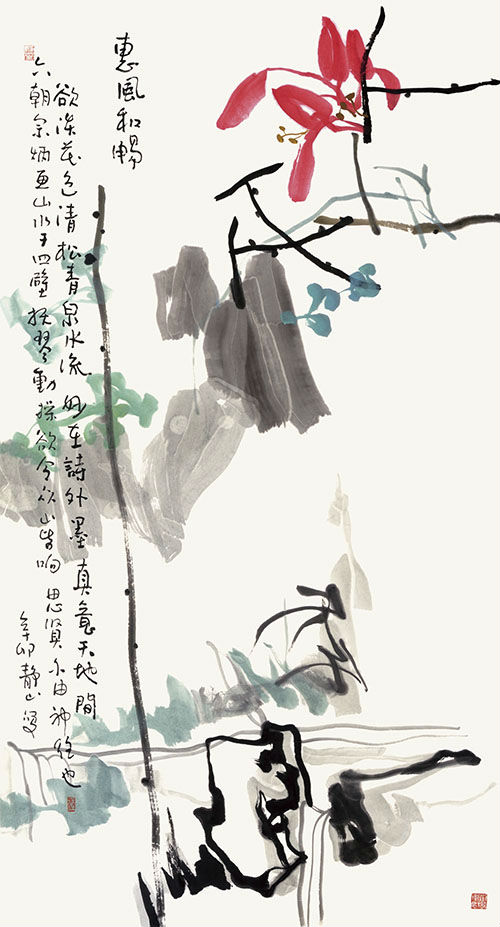 惠風和暢
欲色清松青泉水流妙在詩外墨真意天地間
六朝宗炳画山水于四壁抚琴動操欲令众山皆响思賢由神也
辛卯靜山寫